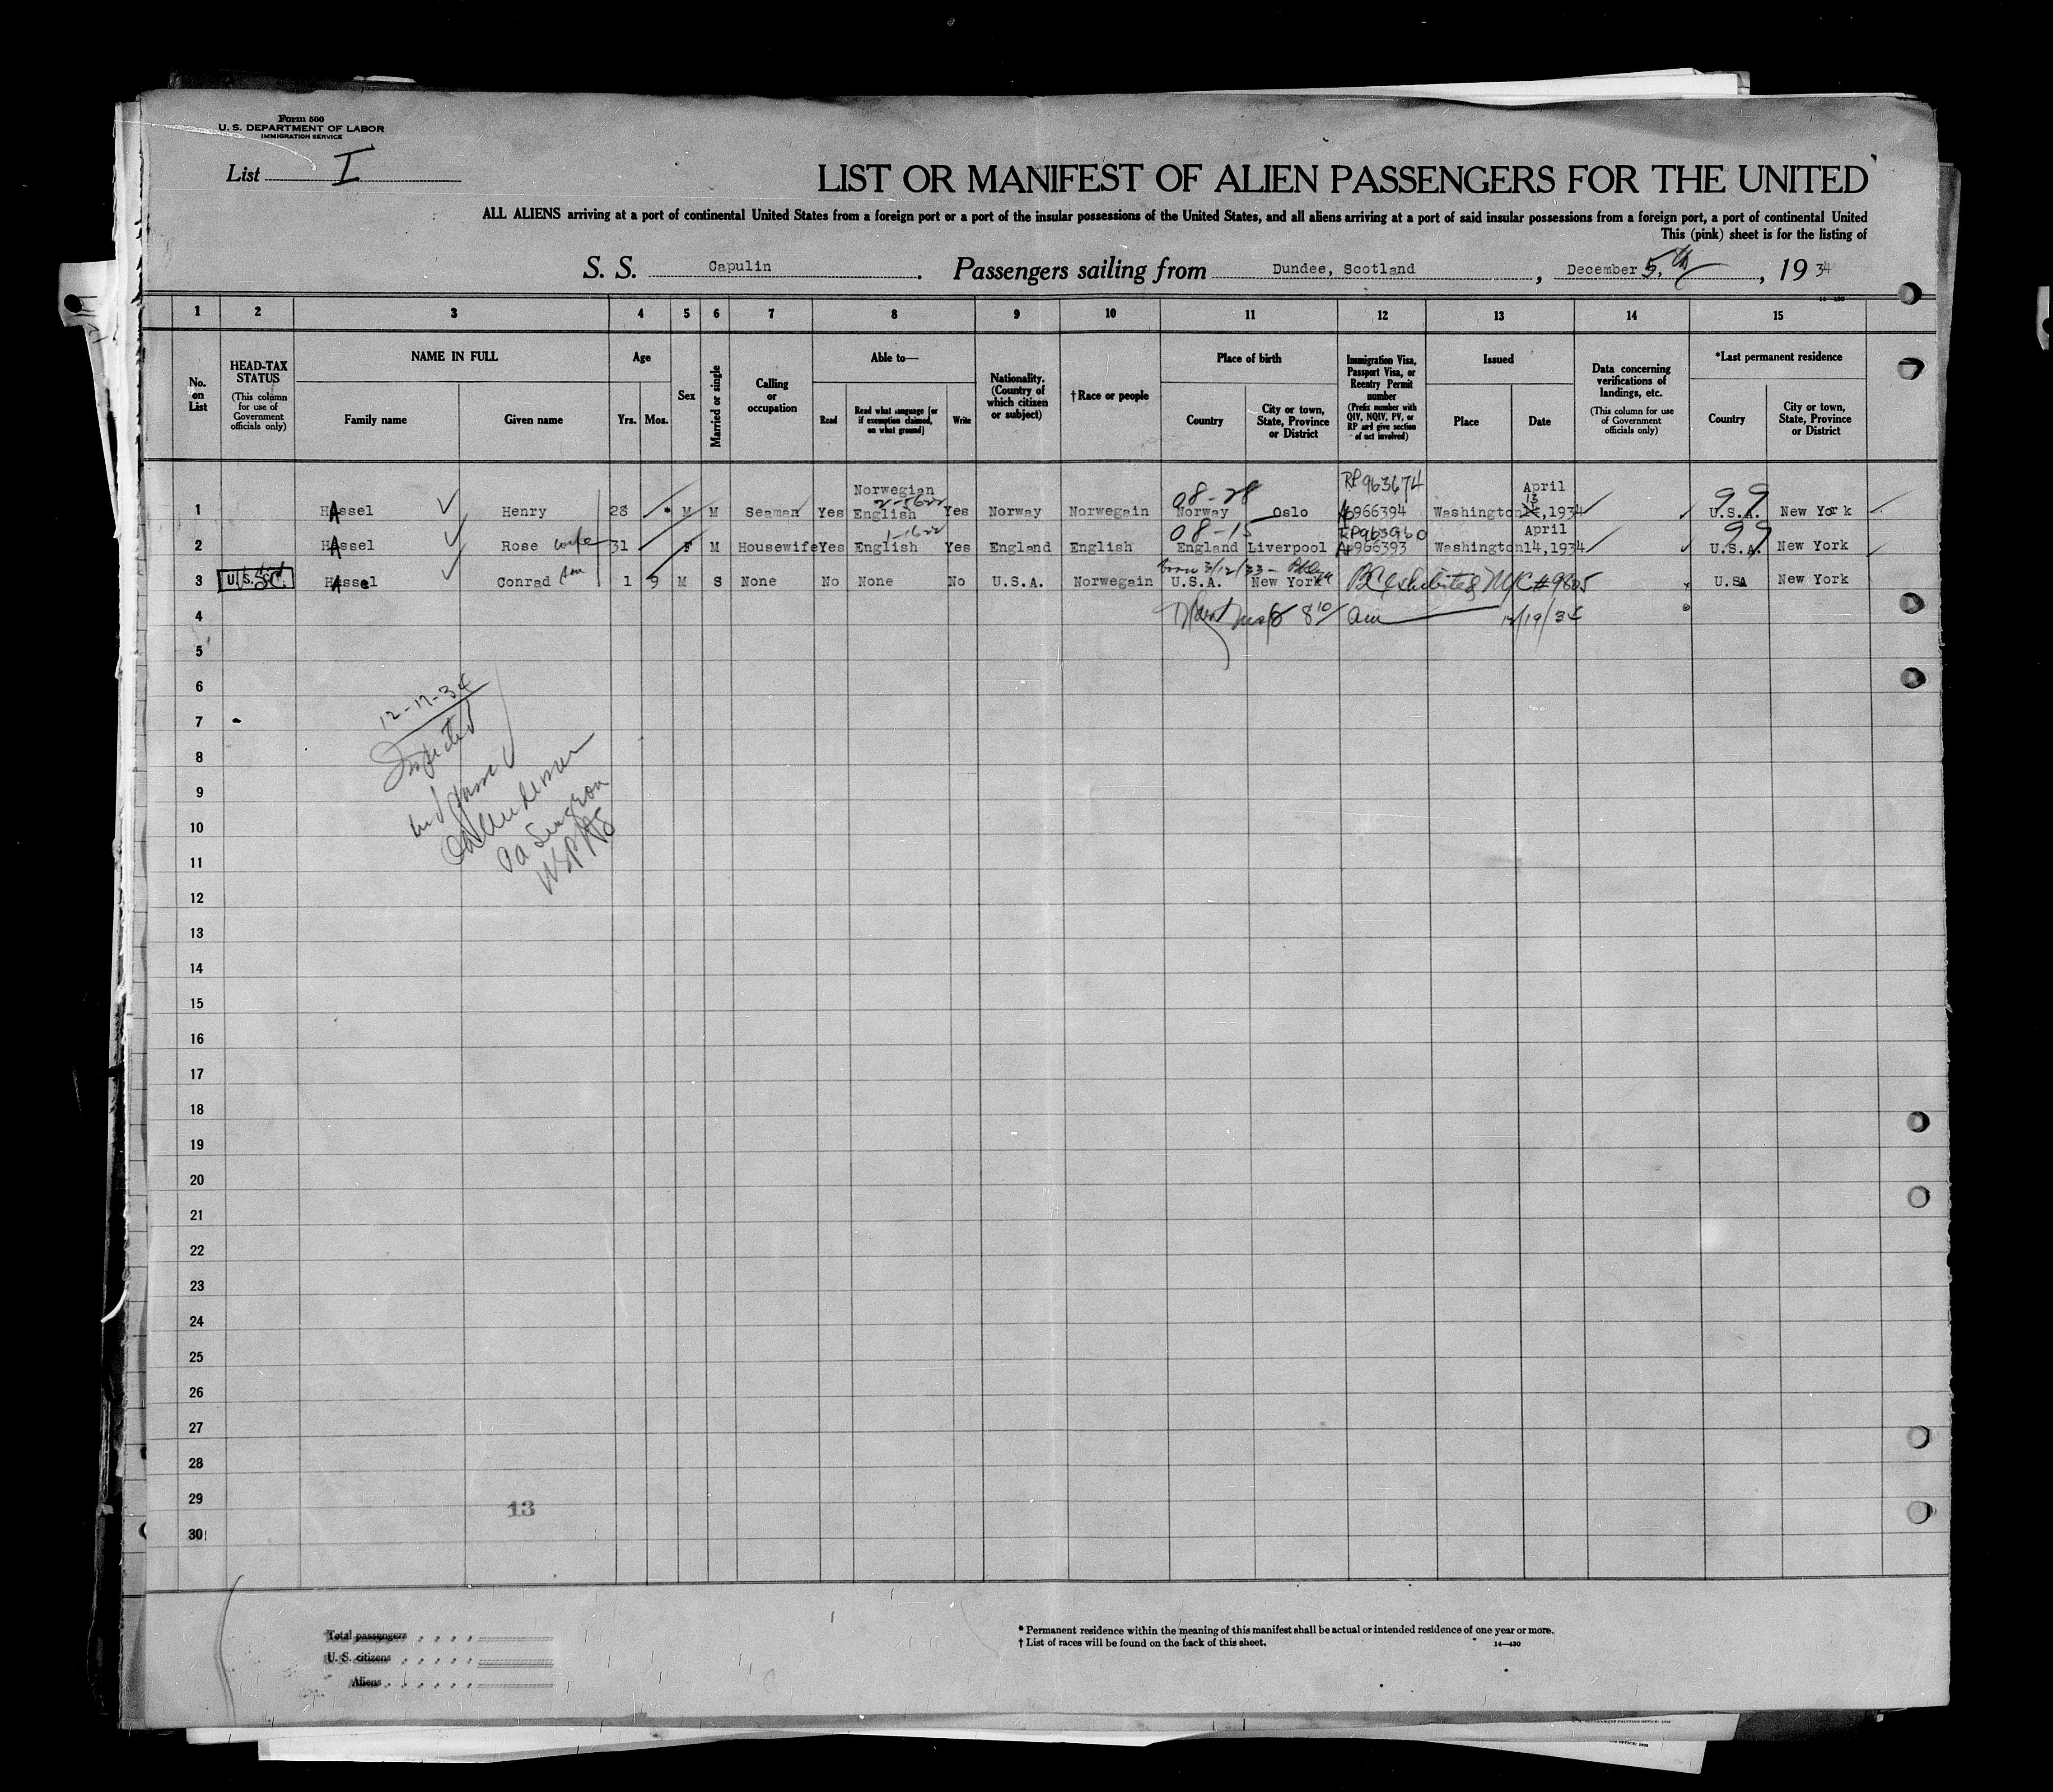 Form 500
U. S. DEPARTMENT OF LABOR
IMMIGRATION SERVICE
List I
LIST OR MANIFEST OF ALIEN PASSENGERS FOR THE UNITED
ALL ALIENS arriving at a port of continental United States from a foreign port or a port of the insular possessions of the United States, and all aliens arriving at a port of said insular possessions from a foreign port, a port of continental United
This (pink) sheet is for the listing of
S. S. Capulin. Passengers sailing from Dundee, Scotland, December 5th, 1934
1 2 3 4 5 6 7 8 9 10 11 12 13 14 15
No. on List
HEAD-TAX STATUS
(This column for use of Government officials only)
NAME IN FULL
Family name
Given name
Age
Yrs. Mos.
Sex
Married or single
Calling or occupation
Able to—
Read
Read what language [or if exemption claimed, on what ground]
Write
Nationality. (Country of which citizen or subject)
†Race or people
Place of birth
Country
City or town, State, Province or District
Immigration Visa, Passport Visa, or Reentry Permit number
(Prefix number with QIV, NQIV, PV, or RP and give section of act involved)
Issued
Place
Date
Data concerning verifications of landings, etc.
(This column for use of Government officials only)
*Last permanent residence
Country
City or town, State, Province or District
Norwegian 08-28 RP963674 April 13 99
1 Hassel Henry 28 M M Seaman Yes English Yes Norway Norwegain Norway Oslo 966394 Washington 1934 U.S.A. New York
08-15 RP963960 April 99
2 Hassel Rose wife 31 F M Housewife Yes English Yes England English England Liverpool 966393 Washington 14,1934 U.S.A. New York
born 3/12/33
3 U.S.C. Hassel Conrad son 1 9 M S None No None No U.S.A. Norwegain U.S.A. New York BC exhibited NYC #9605 U.SA New York
4 8 10/ am 12/19/34
5
6
12-17-34
7
Inspected
8
and passed
9
10
11
12
13
14
15
16
17
18
19
20
21
22
23
24
25
26
27
28
29
13
30
Total passengers
U. S. citizens
Aliens
* Permanent residence within the meaning of this manifest shall be actual or intended residence of one year or more.
† List of races will be found on the back of this sheet.
14—430